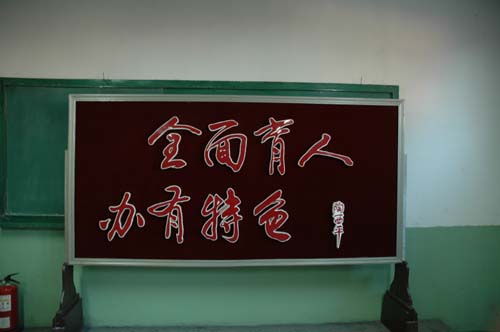 全面育人
办有特色
陶西平